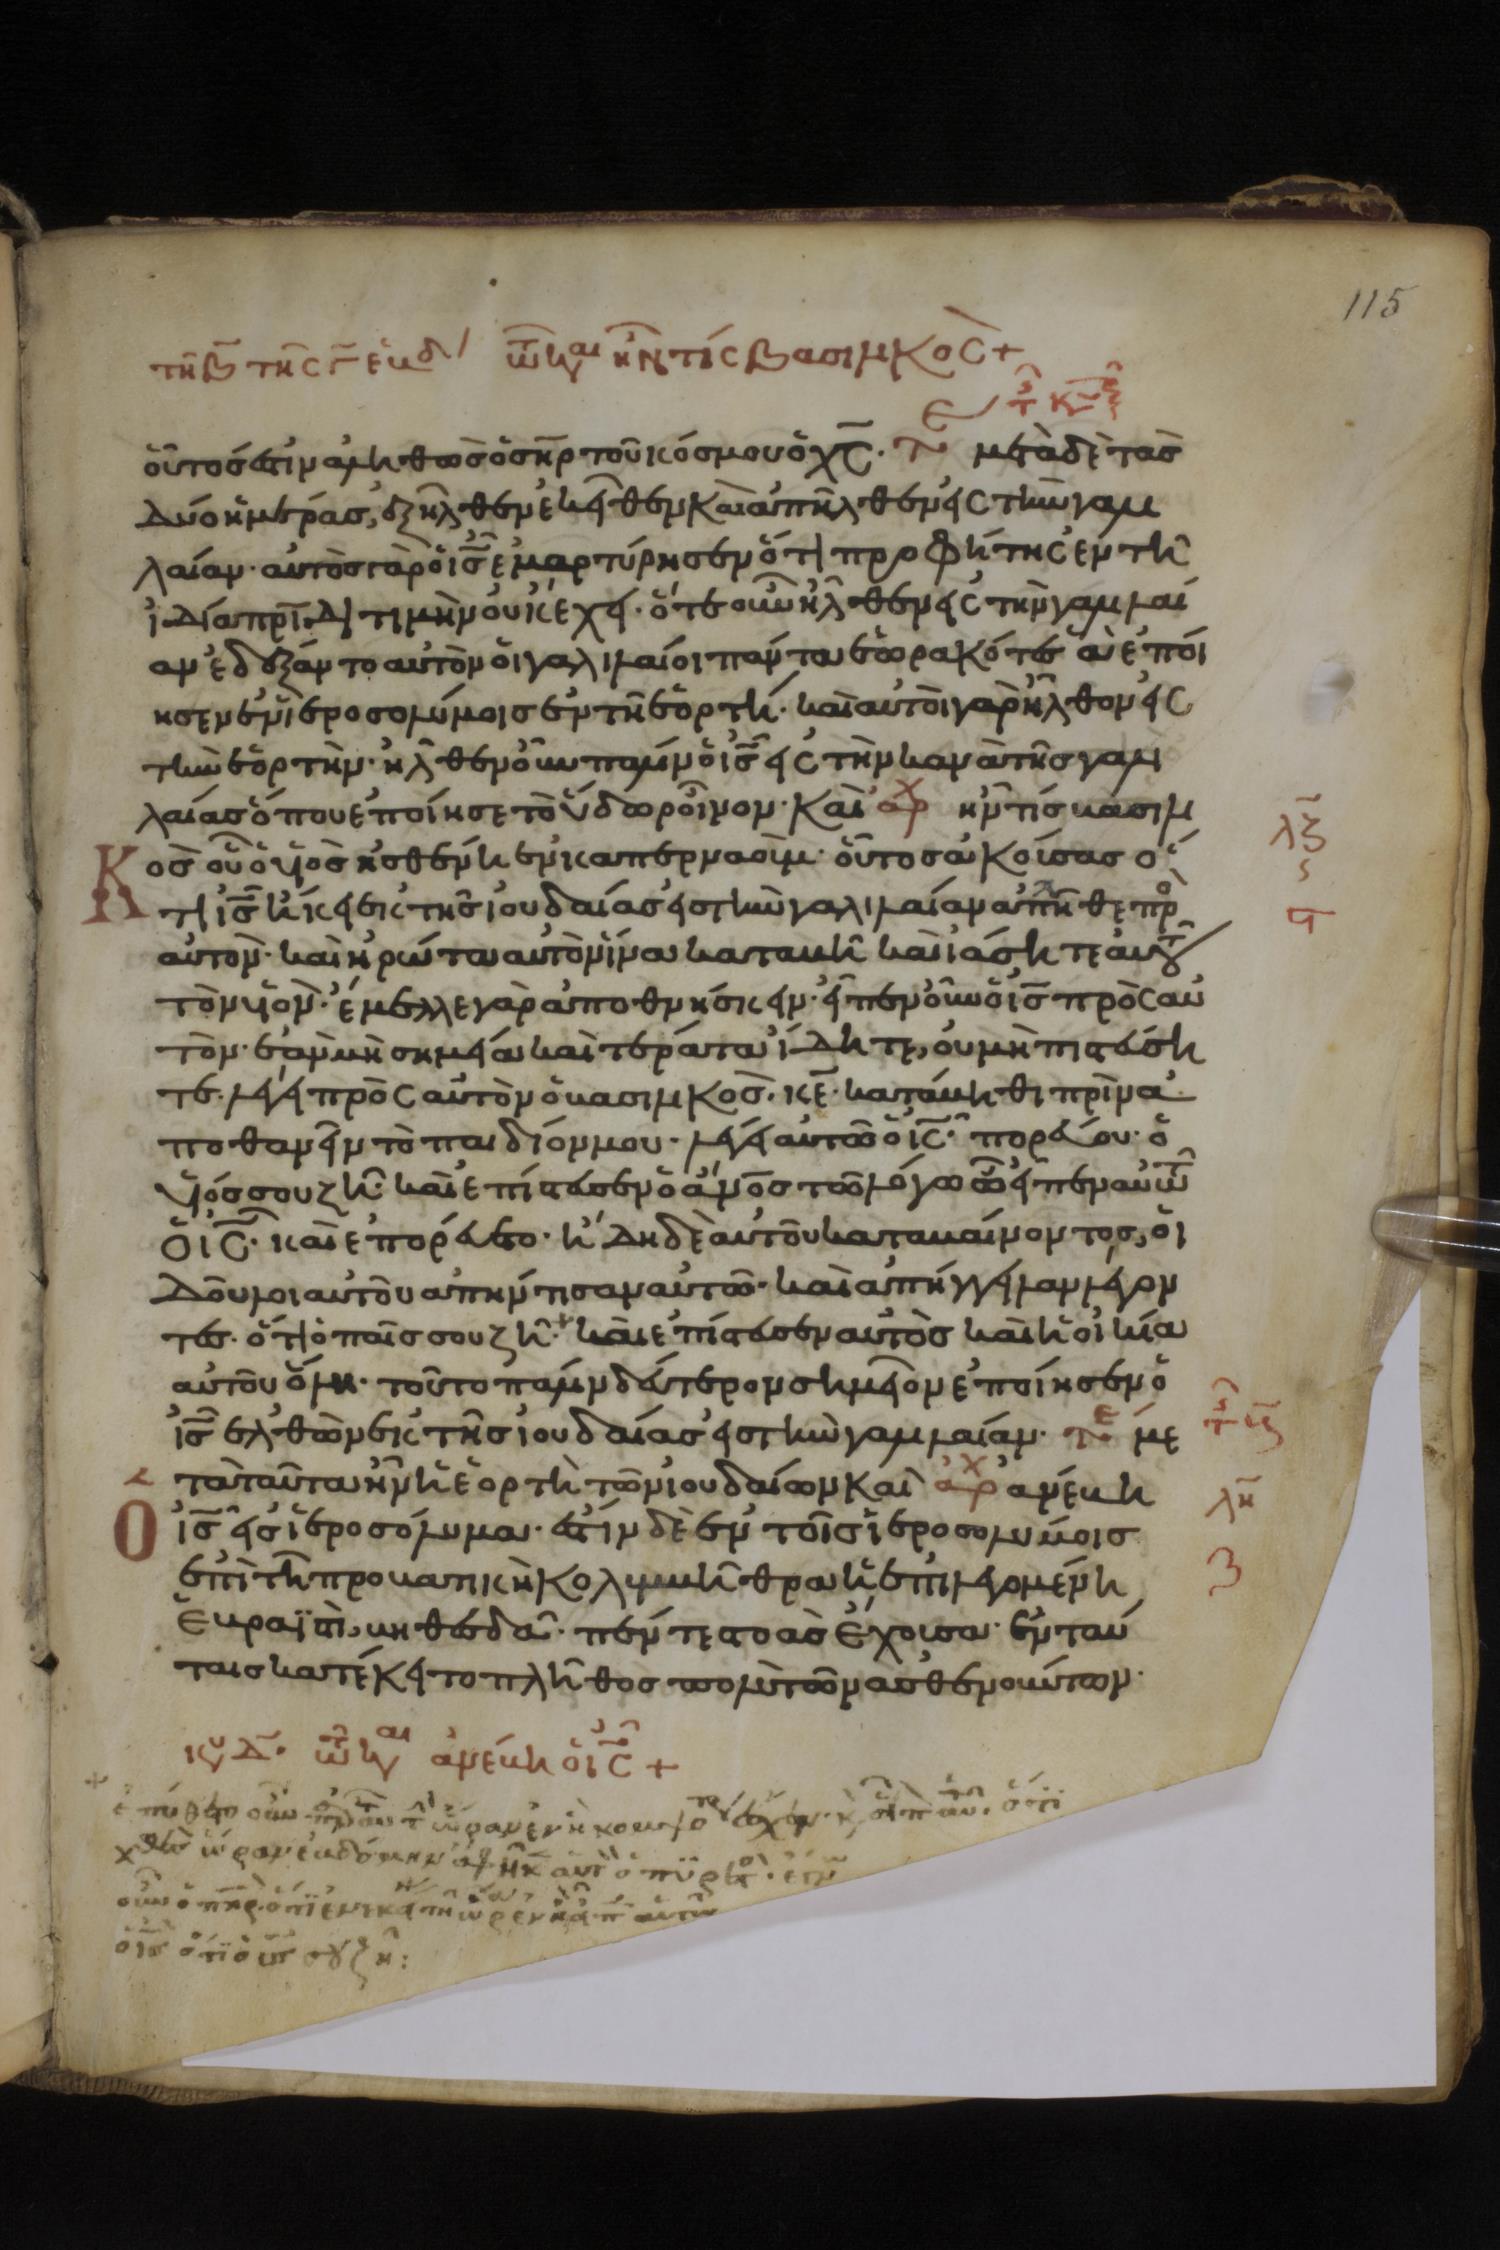 115
τῆ β̅ τῆς γ̅ ἑβδ τῶ καιρῶ ἦν τίς βασιλικὸς +
οὗτός ἐστιν ἀληθῶς ὁ σ̅η̅ρ τοῦ κόσμου ὁ χ̅ς̅. τε μετὰ δὲ τὰς
δύο ἡμέρας, ἐξῆλθεν ἐκεῖθεν καὶ ἀπῆλθεν εἰς τὴν γαλι
λαίαν. αὐτὸς γὰρ ὁ ι̅ς̅ ἐμαρτύρησεν ὅτι προφήτης ἐν τῆ
ἰδία π̅ρ̅ι̅δι τιμὴν οὐκ ἔχει. ὅτε οὖν ἦλθεν εἰς τὴν γαλιλαί
αν ἐδέξαντο αὐτὸν οἱ γαλιλαίοι πάντα ἑωρακότες ἃ ἐποί
ησεν ἐν ἱεροσολύμοις ἐν τῆ ἑορτῆ. καὶ αὐτοὶ γὰρ ἦλθον εἰς
τὴν ἑορτὴν. ἦλθεν οὖν πάλιν ὁ ι̅ς̅ εἰς τὴν κανὰ τῆς γαλι
λαίας ὅπου ἐποίησε τὸ ὕδωρ οἶνον. Καὶ αρχ ἦν τίς βασιλι
κὸς οὗ ὁ υἱὸς ἠσθένει ἐν καπερναούμ. οὗτος ἀκούσας ὅ
τι ι̅ς̅ ἥκει ἐκ τῆς ἰουδαίας εἰς τὴν γαλιλαίαν ἀπῆλθε πρὸ
αὐτὸν. καὶ ἠρώτα αὐτὸν ἵνα καταβῆ καὶ ἰάσηται αὐτοῦ
τὸν υἱὸν. ἔμελλε γὰρ ἀποθνήσκειν. εἶπεν οὖν ὁ ι̅ς̅ πρὸς αὐ
τὸν. ἐὰν μὴ σημεῖα καὶ τέρατα ἴδητε, οὐ μὴ πιστεύση
τε. λέγει πρὸς αὐτὸν ὁ βασιλικὸς. κ̅ε̅. κατάβηθι πρὶν ἀ
ποθανεῖν τὸ παιδίον μου. λέγει αὐτῶ ὁ ι̅ς̅. πορεύου. ὁ
υἱός σου ζῆ. καὶ ἐπίστευσεν ὁ ἄ̅ν̅ο̅ς τῶ λόγω ὧ εἶπεν αὐτῶ
ὁ ι̅ς̅. καὶ ἐπορεύετο. ἤδη δὲ αὐτοῦ καταβαίνοντος, οἱ
δοῦλοι αὐτοῦ ἀπήντησαν αὐτῶ. καὶ ἀπήγγειλαν λέγον
τες. ὅτι ὁ παῖς σου ζῆ. καὶ ἐπίστευσεν αὐτὸς καὶ ἡ οἰκία
αὐτοῦ ὅλη. τοῦτο πάλιν δεύτερον σημεῖον ἐποίησεν ὁ
ι̅ς̅ ἐλθὼν ἐκ τῆς ἰουδαίας εἰς τὴν γαλιλαίαν. τε με
τὰ ταῦτα ἦν ἡ ἑορτὴ τῶν ἰουδαίων καὶ αρχ ἀνέβη
ὁ ι̅ς̅ εἰς ἱεροσόλυμα. ἐστίν δὲ ἐν τοῖς ἱεροσολύμοις
ἐπὶ τῆ προβατικὴ κολυμβήθρα ἡ ἐπιλεγομένη
ἑβραϊστὶ, βηθεσδὰ. πέντε στοὰς ἔχουσα. ἐν ταύ
ταις κατέκειτο πλῆθος πολὺ τῶν ἀσθενούντων.
κυ δ̅. τῶ καιρῶ ἀνέβη ὁ ι̅ς̅ +
ἐπύθετο οὖν παρ αὐτ τ ὥραν ἐν ἧ κομψότερον ἔσχεν. κ εἶπ αὐτ. ὅτι
χθὲς ὥραν ἑβδόμην ἀφῆκ αὐτ ὁ πυρετ. ἔγν
οὖν ὁ π̅η̅ρ. ὅτι ἐν ἐκείνη τῆ ὥρα ἐν ἧ εἶπ αὐτῶ
ὁ ι̅ς̅ ὅτι ὁ υ̅ς̅ σου ζῆ: